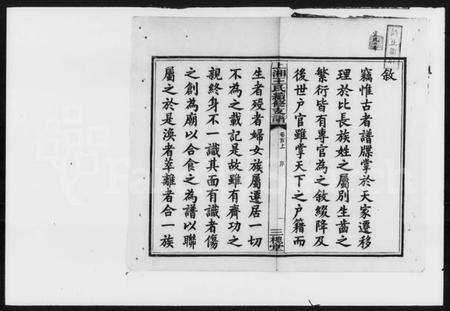 敘
竊惟古者譜牒掌於天家遷移
理於比長族姓之屬別生齒之
繁衍皆有專官為之敘綴降及
後世戶官雖掌天下之戶籍而
上湘王氏續修支譜
卷首上
序
三槐堂
生者歿者婦女族屬遷居一切
不為之載記是故雖有齊功之
親終身不一識其面有識者傷
之創為廟以合食之為譜以聯
屬之於是渙者萃離者合一族